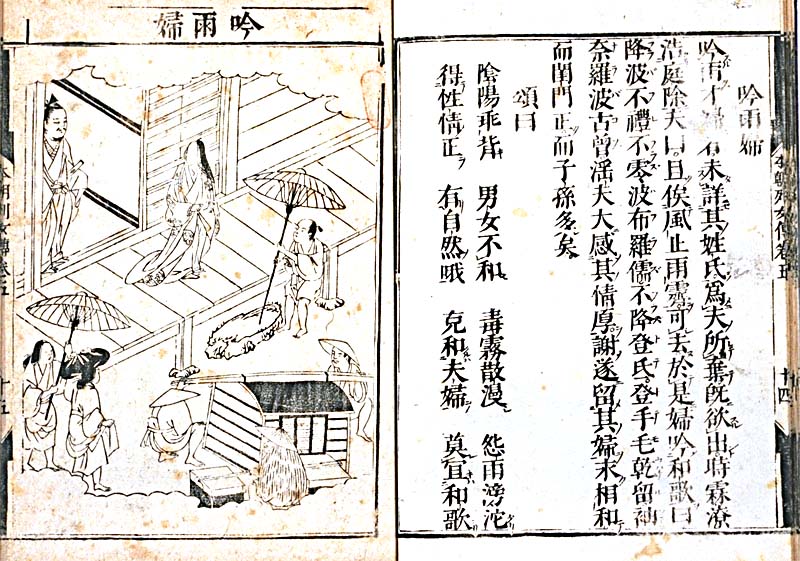 吟雨婦
吟雨 婦者未詳其姓氏爲夫所棄既欲出時霖潦
浩庭除夫曰且俟風止雨霽可去於是婦吟和歌曰
降波不禮不零波布羅儒不降登氏登手毛乾留袖
奈羅波古曾滛夫大感其情厚謝遂留其婦永相和
而閨門正而子孫多矣
頌曰
陰陽乖背 男女不和 毒霧散漫 怨雨滂沱
得性情正 有自然哦 克和夫婦 莫宜和歌
本朝列女傳卷五 十四
吟雨婦
本朝列女傳卷五 十五